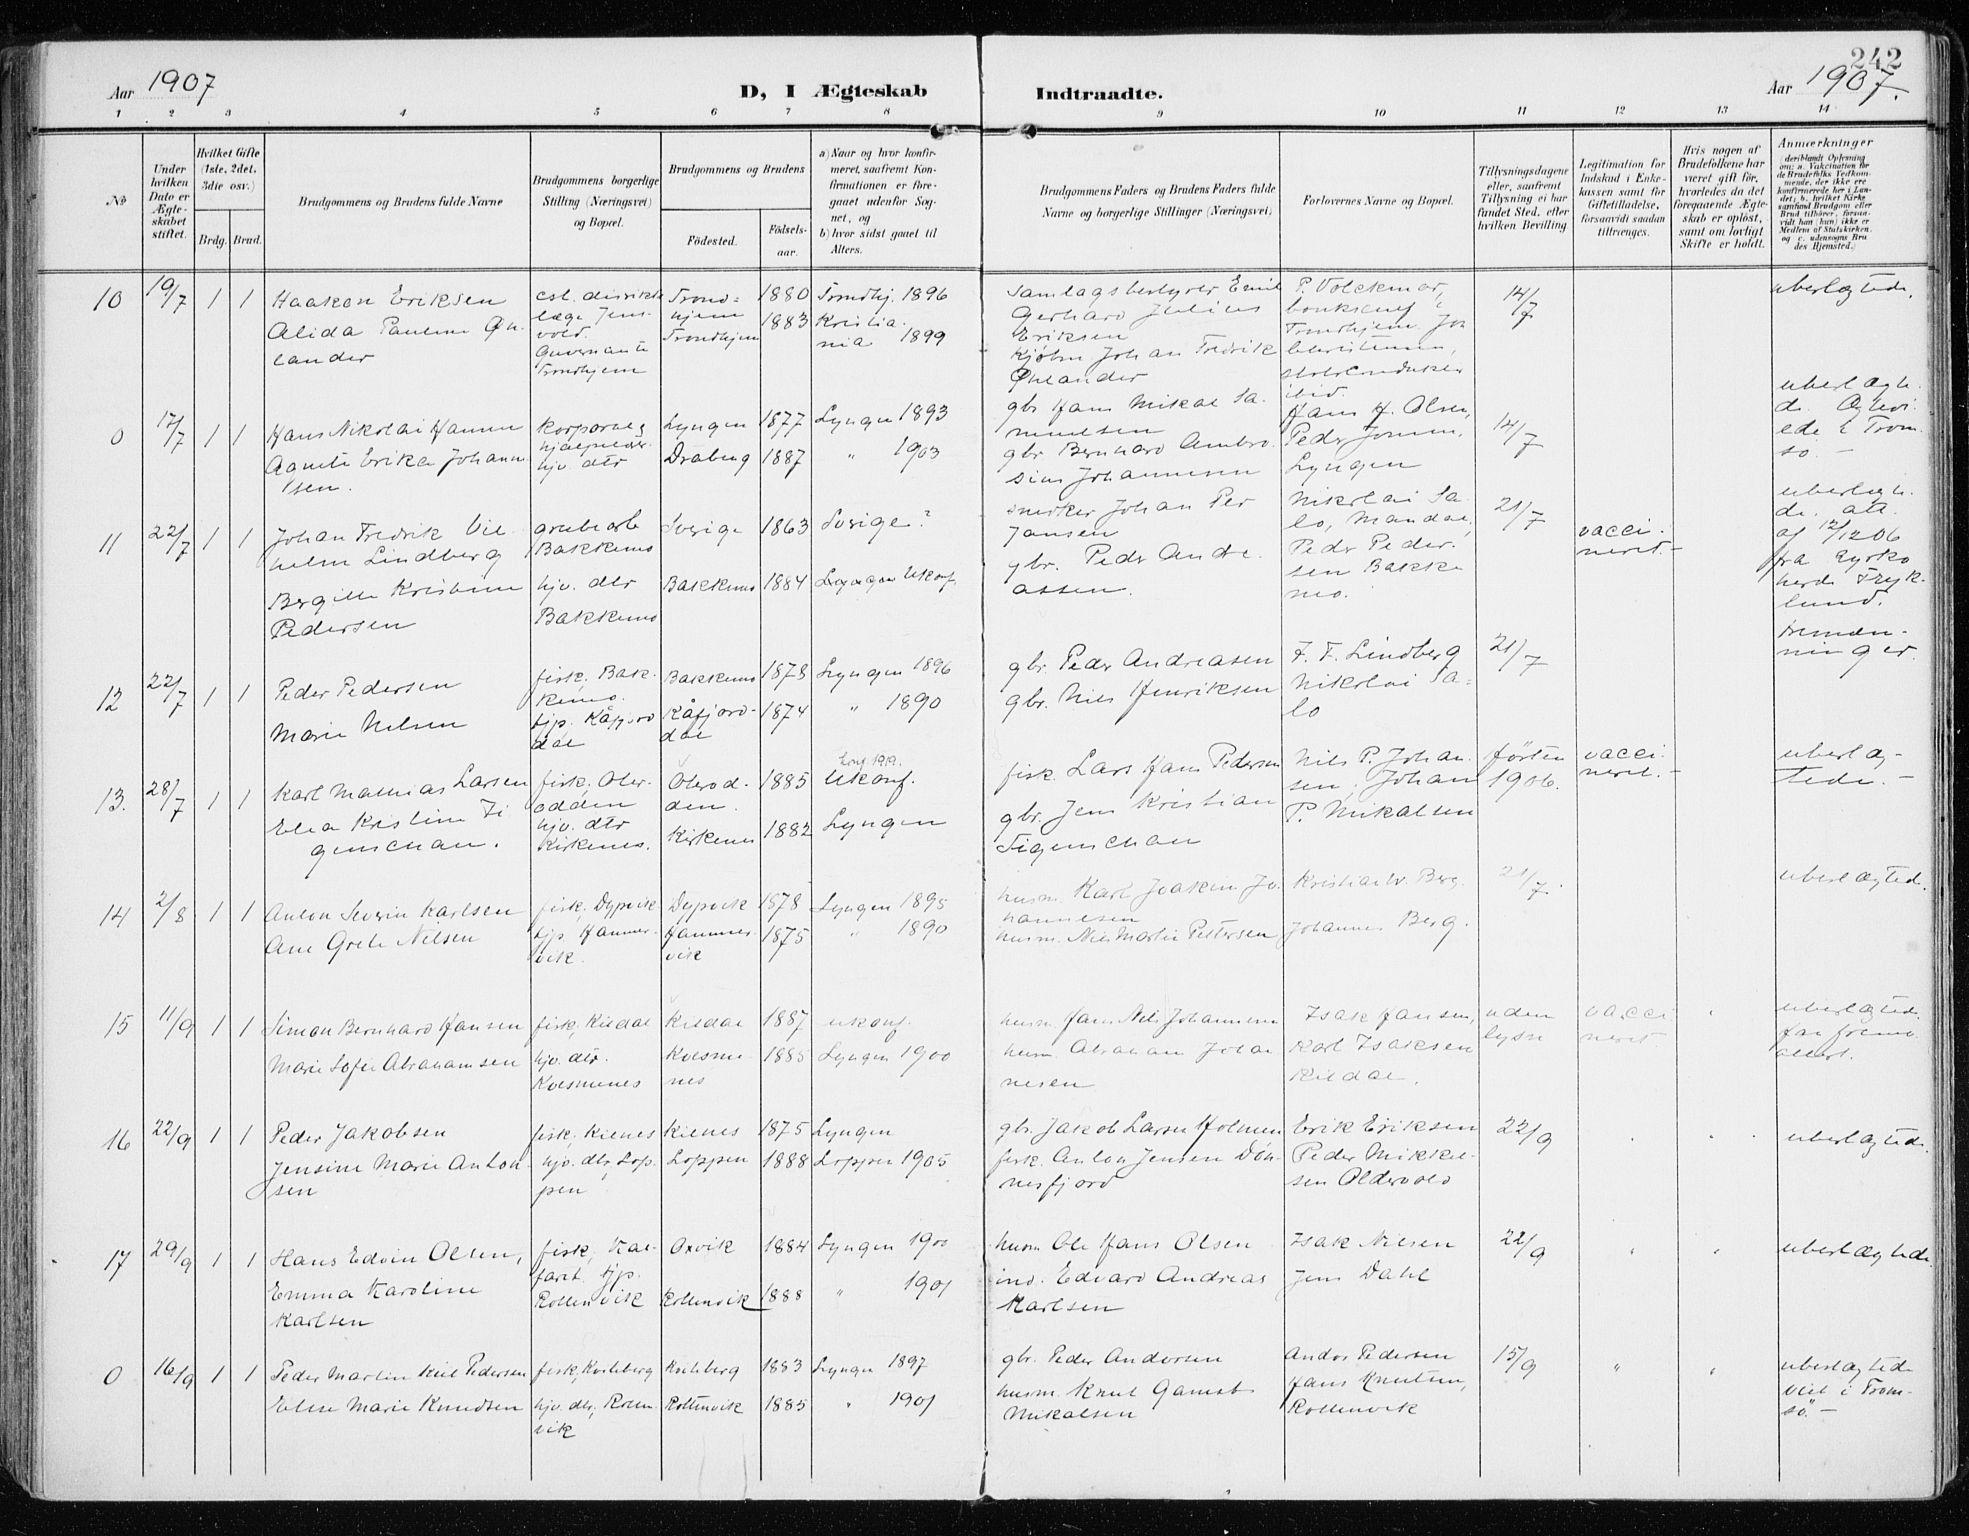 242
Aar 1907
D, I Ægteskab Indtraadte.
Aar 1907.
1 2 3 4 5 6 7 8 9 10 11 12 13 14
No
Under hvilken Dato er Ægteskabet stiftet.
Hvilket Gifte (1ste, 2det, 3die osv.)
Brdg. Brud.
Brudgommens og Brudens fulde Navne
Brudgommens borgerlige Stilling (Næringsvei) og Bopæl.
Brudgommens og Brudens
Födested. Födselsaar.
a) Naar og hvor konfirmeret, saafremt Konfirmationen er foregaaet udenfor Sognet, og
b) hvor sidst gaaet til Alters.
Brudgommens Faders og Brudens Faders fulde Navne og borgerlige Stillinger (Næringsvei)
Forlovernes Navne og Bopæl.
Tillysningsdagene eller, saafremt Tillysning ei har fundet Sted, efter hvilken Bevilling
Legitimation for Indskud i Enkekassen samt for Giftetilladelse, forsaavidt saadan tiltrænges.
Hvis nogen af Brudefolkene har været gift før, hvorledes da det foregaaende Ægteskab er oplöst, samt om lovligt Skifte er holdt.
Anmærkninger
(deriblandt Oplysning om: a. Vakcination for de Brudefolks Vedkommende, der ikke ere konfirmerede her i Landet; b. hvilket Kirkesamfund Brudgom eller Brud tilhörer, forsaavidt han (hun) ikke er Medlem af Statskirken, og c. udensogns Brudes Hjemsted.)
10 19/7 1 1 Haakon Eriksen
Alida Pauline Øhlander
Guvernante Trondhjem
Trondhjem Trondhjem
1880 1883
Trondhj. 1896
Kristiania 1899
Samlagsbestyrer Emil Gerhard Julius Eriksen
Kjøbm Johan Fredrik Øhlander
P. Volckmar,
ibid.
14/7
uberlegtede.
0 17/7 1 1 Hans Nikolai Hansen
Agnete Erika Johannsen.
hjv. dtr
Lyngen 1877 Lyngen 1893
1887 " 1903
gbr Hans Mikal Samuelsen
gbr. Bernhard Ambrosius Johannesen
Hans H. Olsen,
Lyngen
14/7
Tromsö. -
11 22/7 1 1 Johan Fredrik Vilhelm Lindberg
Bergitte Kristine Pedersen
grubearb Bakkemo
hjv. dtr Bakkemo
Sverige 1863 Sverige?
Bakkemo 1884 Lyngen Ukonf.
snedker Johan Per Jansen
gbr. Peder Andreassen.
Nikolai Salo, Mandal,
Peder Pedersen Bakkemo.
21/7
vaccineret. -
af 12/12 06
12 22/7 1 1 Peder Pedersen
Marie Nilsen
fisk. Bakkemo.
tjp. Kåfjorddal
Bakkemo 1878 Lyngen 1896
Kåfjorddal 1874 " 1890
gbr. Peder Andreasen
gbr. Nils Henriksen
F. F. Lindberg
Nikolai Salo
21/7
13. 28/7 1 1 Karl Mathias Larsen
Elea Kristine Figenschau.
fisk. Olerodden
hjv. dtr Kirkenes.
Olerodden. 1885 Ukonf.
konf. 1919.
Kirkenes 1882 Lyngen
fisk. Lars Hans Pedersen
gbr. Jens Kristian Figenschau
Nils P. Johansen, Johan P. Mikalsen
1906.
vaccineret. -
uberlegtede. -
14 2/8 1 1 Anton Severin Karlsen
Ane Grete Nilsen
fisk. Dypvik
tjp Hammervik.
Dypvik 1878 Lyngen 1895
Hammervik 1875 " 1890
husm. Karl Joakim Johannesen
husm. Nils Martin Pettersen
Johannes Berg.
21/7.
uberlegted.
15 11/9 1 1 Simon Bernhard Hansen
Marie Sofie Abrahamsen
fisk. Kildal
hjv. dtr.
Kildal 1887 ukonf.
1885 Lyngen 1900
husm. Hans Nils Johannesen
husm. Abraham Johannesen
Isak Hansen,
Karl Isaksen Kildal.
uden lysn
vaccineret.
uberlegted.
16 22/9 1 1 Peder Jakobsen
Jensine Marie Antonsen
fisk. Kilnes
hjv. dtr, Loppen
Kilnes 1875 Lyngen
Loppen 1888 Loppen 1905
gbr. Jakob Larsen Holmen
fisk. Anton Jensen Dönnesfjord
Erik Eriksen
Peder Mikkelsen Oldervold
22/9
uberlegted.
17 29/9 1 1 Hans Edvin Olsen,
Emma Karoline Karlsen
fisk, tjp. Rottenvik
Oxvik 1884 Lyngen 1900
Rottenvik 1888 " 1901
husm Ole Hans Olsen
ind. Edvard Andreas Karlsen
Isak Nilsen
Jens Dahl
22/9
uberlegtede
0 16/9 1 1 Peder Martin Keil Pedersen
Elen Marie Knudsen
hjv. dtr, Rottenvik
1883 Lyngen 1897
Rottenvik 1885 " 1901
gbr. Peder Andersen
husm. Knut Gamst Mikalsen
Andor Pedersen
Hans Knutsen, Rottenvik
15/9
uberlegtede
Viet i Tromsö. -